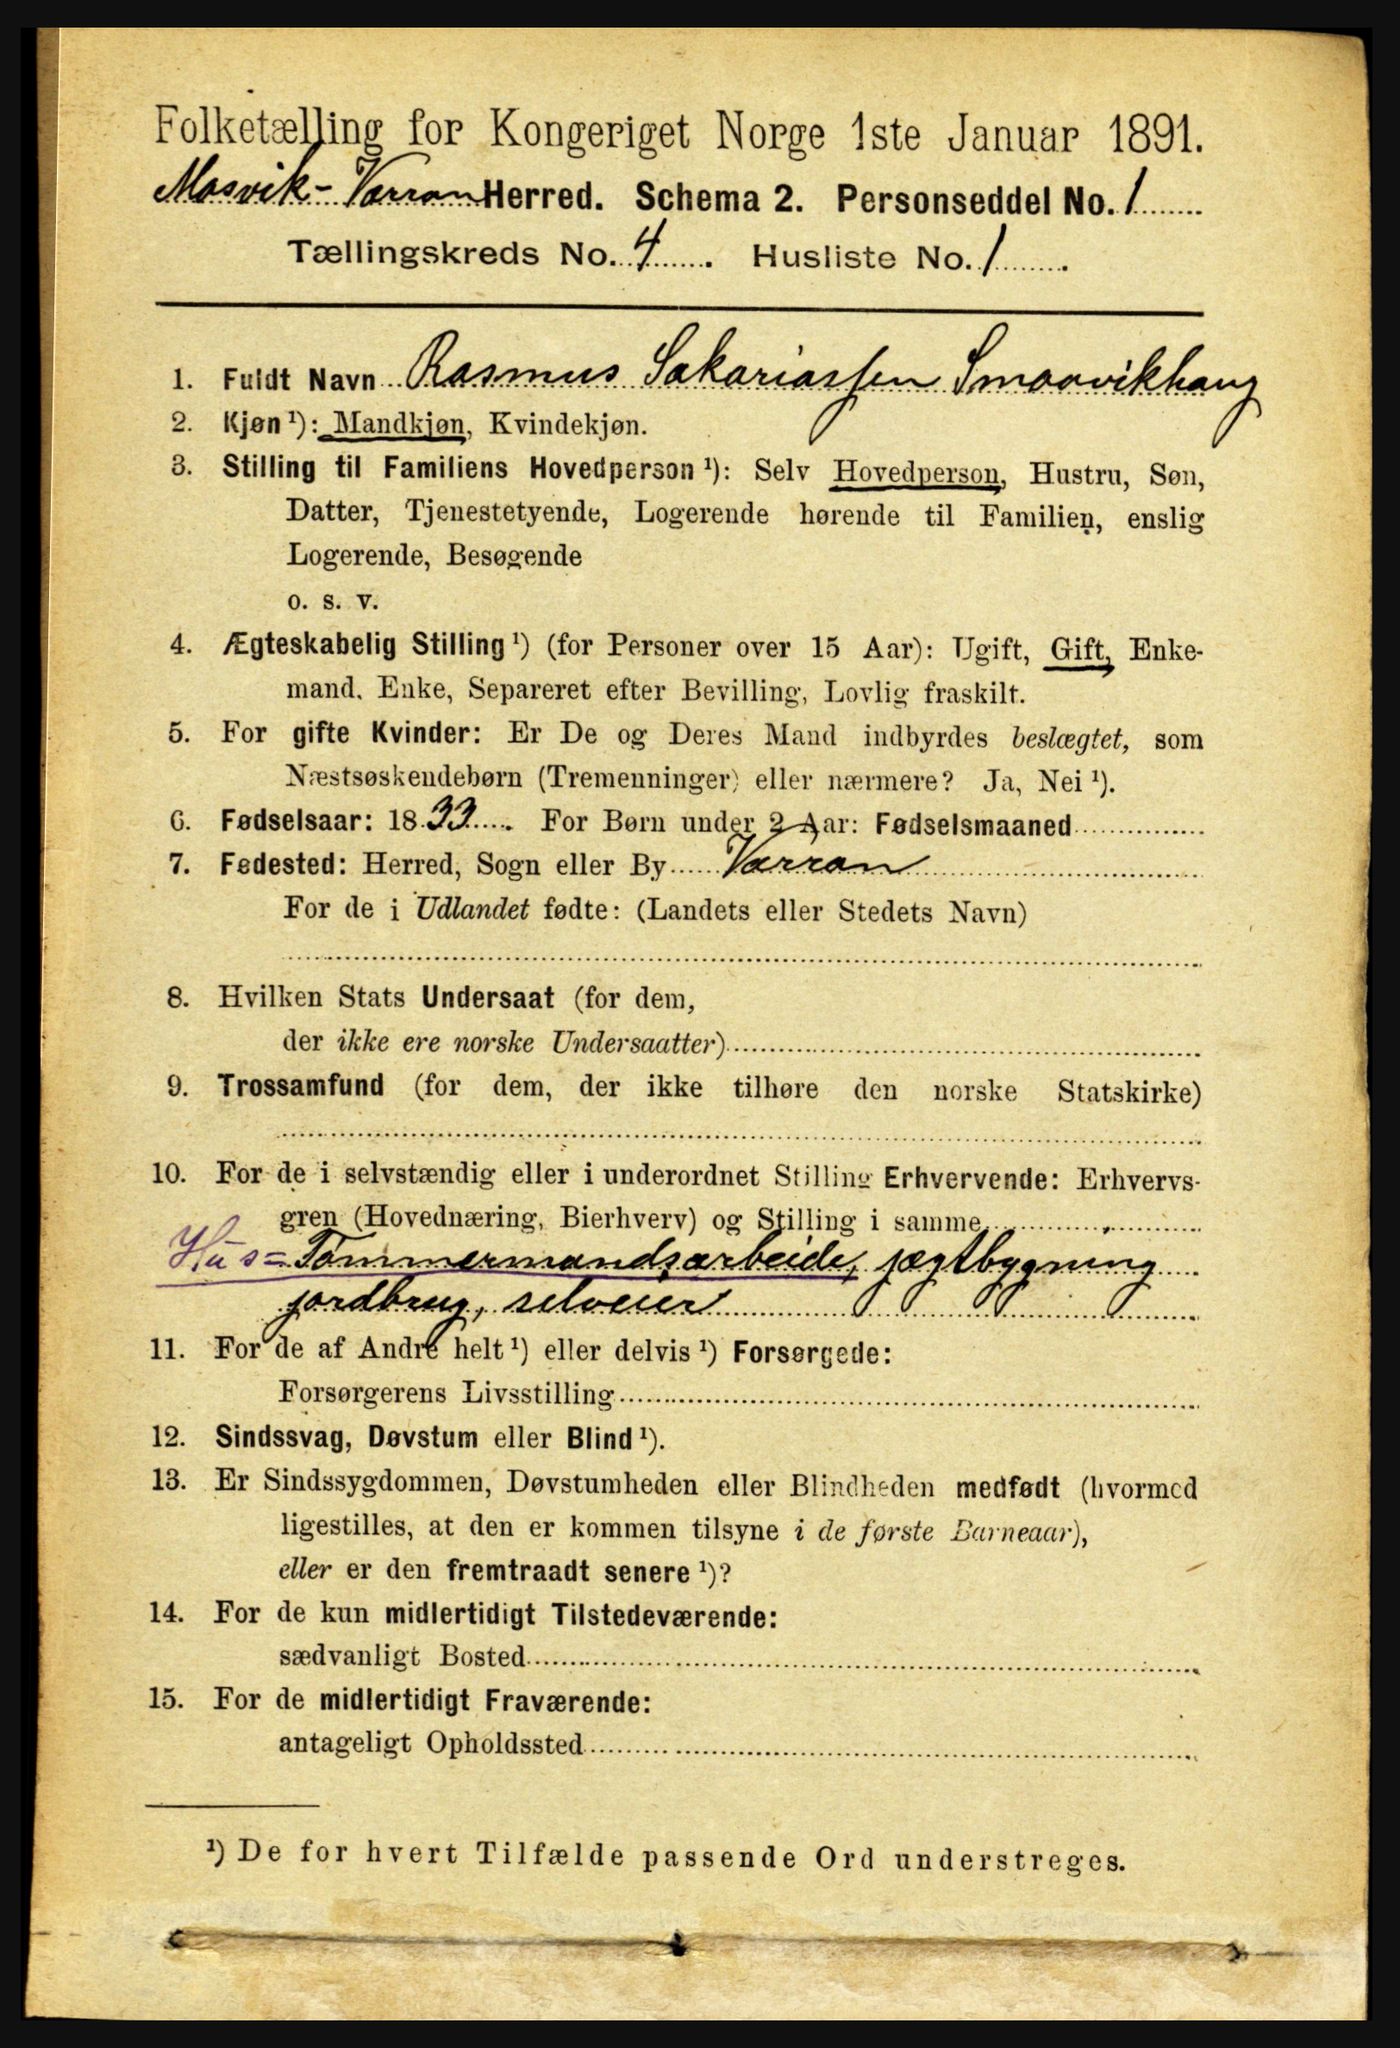 Folketælling for Kongeriget Norge 1ste Januar 1891.
Mosvik-Varran Herred. Schema 2. Personseddel No. 1
Tællingskreds No. 4. Husliste No. 1.
1. Fuldt Navn Rasmus Sakariassen Smaavikhaug
2. Kjøn ¹): Mandkjøn, Kvindekjøn.
3. Stilling til Familiens Hovedperson ¹): Selv Hovedperson, Hustru, Søn,
Datter, Tjenestetyende, Logerende hørende til Familien, enslig
Logerende, Besøgende
o. s. v.
4. Ægteskabelig Stilling ¹) (for Personer over 15 Aar): Ugift, Gift, Enke-
mand, Enke, Separeret efter Bevilling, Lovlig fraskilt.
5. For gifte Kvinder: Er De og Deres Mand indbyrdes beslægtet, som
Næstsøskendebørn (Tremenninger) eller nærmere? Ja, Nei ¹).
6. Fødselsaar: 1833. For Børn under 2 Aar: Fødselsmaaned
7. Fødested: Herred, Sogn eller By Varran
For de i Udlandet fødte: (Landets eller Stedets Navn)
8. Hvilken Stats Undersaat (for dem,
der ikke ere norske Undersaatter)
9. Trossamfund (for dem, der ikke tilhøre den norske Statskirke)
10. For de i selvstændig eller i underordnet Stilling Erhvervende: Erhvervs-
gren (Hovednæring, Bierhverv) og Stilling i samme
Hus=Tømmermandsarbeide, jægtbygning
jordbrug, selveier
11. For de af Andre helt ¹) eller delvis ¹) Forsørgede:
Forsørgerens Livsstilling
12. Sindssvag, Døvstum eller Blind ¹).
13. Er Sindssygdommen, Døvstumheden eller Blindheden medfødt (hvormed
ligestilles, at den er kommen tilsyne i de første Barneaar),
eller er den fremtraadt senere ¹)?
14. For de kun midlertidigt Tilstedeværende:
sædvanligt Bosted
15. For de midlertidigt Fraværende:
antageligt Opholdssted
¹) De for hvert Tilfælde passende Ord understreges.